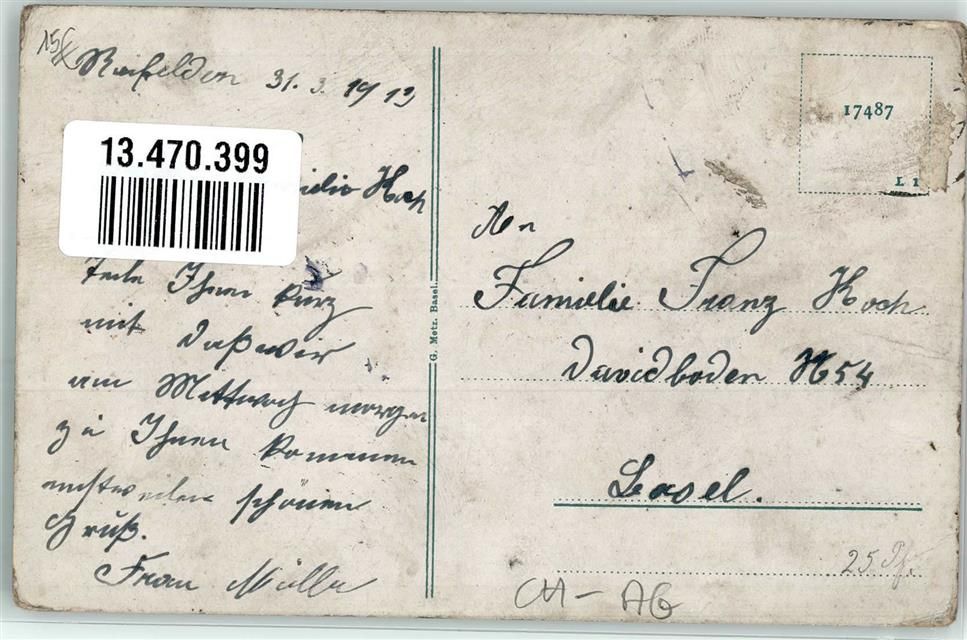 Reinfelden 31. 3. 1913
13.470.399
Familie Koch
Teile Ihnen kurz
mit daß wir
am Mittwoch morgen
zu Ihnen kommen
einstweilen schönen
Gruß.
Frau Müller
G. Metz. Basel.
17487
L 1
An
Familie Franz Koch
Davidboden N 54
Basel.
25 Pf.
CH-AG